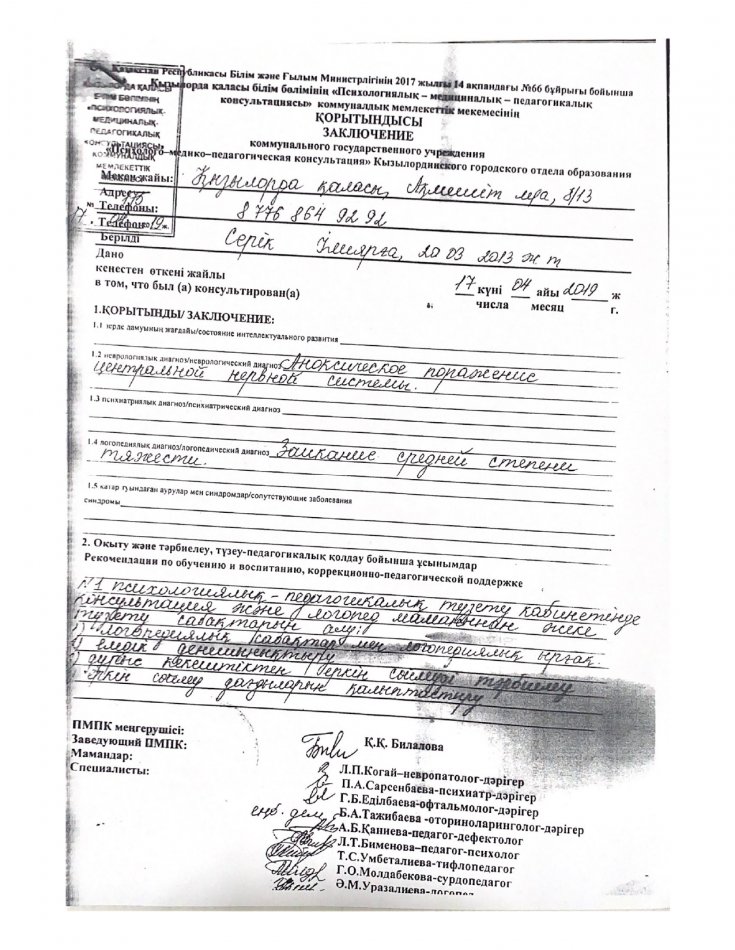 Қазақстан Республикасы Білім және Ғылым Министрлігінің 2017 жылғы 14 ақпандағы №66 бұйрығы бойынша
Қызылорда қаласы білім бөлімінің «Психологиялық – медициналық – педагогикалық
консультациясы» коммуналдық мемлекеттік мекемесінің
ҚОРЫТЫНДЫСЫ
ЗАКЛЮЧЕНИЕ
коммунального государственного учреждения
«Психолого–медико–педагогическая консультация» Кызылординского городского отдела образования
ҚЫЗЫЛОРДА ҚАЛАСЫ
БІЛІМ БӨЛІМІНІҢ
«ПСИХОЛОГИЯЛЫҚ-
МЕДИЦИНАЛЫҚ-
ПЕДАГОГИКАЛЫҚ
КОНСУЛЬТАЦИЯСЫ»
КОММУНАЛДЫҚ
МЕМЛЕКЕТТІК
Мекен жайы: Қызылорда қаласы, Ақмешіт м/а, 8/13
Адрес:
Телефоны: 8 776 864 92 92
Телефон:
Берілді Серік Іниярға, 20 03 2013 ж т
Дано
кеңестен өткені жайлы
в том, что был (а) консультирован(а)
17 күні 04 айы 2019 ж
числа месяц г.
1.ҚОРЫТЫНДЫ/ ЗАКЛЮЧЕНИЕ:
1.1 зерде дамуының жағдайы/состояние интеллектуального развития
1.2 неврологиялық диагноз/неврологический диагноз Аноксическое поражение
центральной нервной системы.
1.3 психиатриялық диагноз/психиатрический диагноз
1.4 логопедиялық диагноз/логопедический диагноз Заикание средней степени
тяжести.
1.5 қатар туындаған аурулар мен синдромдар/сопутствующие заболевания
синдромы
2. Оқыту және тәрбиелеу, түзеу-педагогикалық қолдау бойынша ұсынымдар
Рекомендации по обучению и воспитанию, коррекционно-педагогической поддержке
№1 психологиялық - педагогикалық түзету кабинетінде
консультация және логопед маманнан жеке
түзету сабақтарын алу:
логопедиялық сабақтар мен логопедиялық ырғақ.
емдік денешынықтыру
дұрыс кекештіктен еркін сөйлеуді тәрбиелеу
еркін сөйлеу дағдыларын қалыптастыру
ПМПК меңгерушісі:
Заведующий ПМПК: Қ.Қ. Билалова
Мамандар:
Специалисты: Л.П.Когай–невропатолог-дәрігер
П.А.Сарсенбаева-психиатр-дәрігер
Г.Б.Еділбаева-офтальмолог-дәрігер
Б.А.Тажибаева -оториноларинголог-дәрігер
А.Б.Қапиева-педагог-дефектолог
Л.Т.Бименова–педагог-психолог
Т.С.Умбеталиева-тифлопедагог
Г.О.Молдабекова-сурдопедагог
Ә.М.Уразалиева-логопед